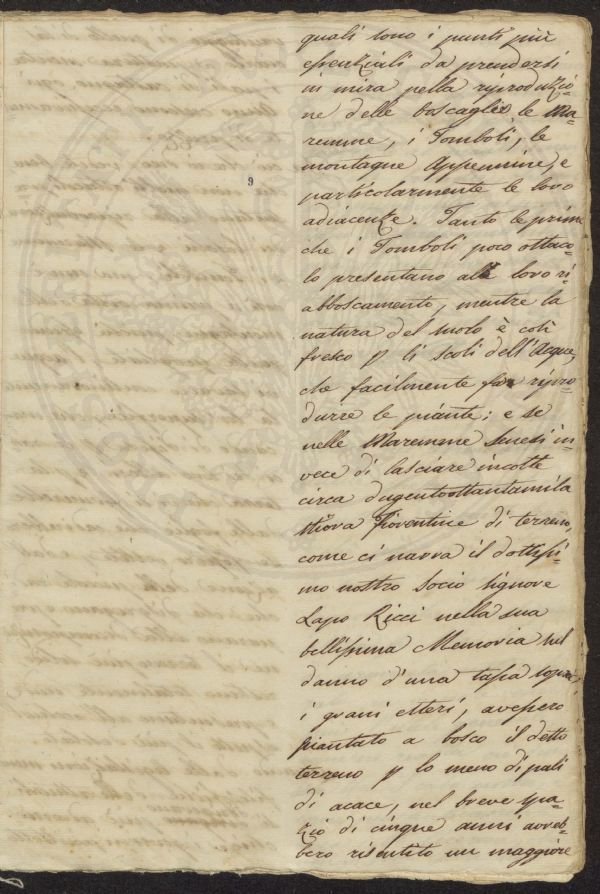 quali sono i punti più
essenziali da prendersi
in mira nella riproduzio-
ne delle boscaglie, le Ma-
remme, i Tomboli, le
montagne Appennine, e
9
particolarmente le loro
adiacenze. Tanto le prime
che i Tomboli poco ostaco-
lo presentano al loro ri-
abboscamento, mentre la
natura del suolo è così
fresco p li scoli dell'Acque,
che facilmente fa ripro-
durre le piante; e se
nelle Maremme Senesi in-
vece di lasciare incolte
circa dugentottantamila
stiora fiorentine di terreno,
come ci narra il dottissi-
mo nostro socio signore
Lapo Ricci nella sua
bellissima Memoria sul
danno d'una tassa sopra
i grani esteri, avessero
piantato a bosco il detto
terreno p lo meno di pali
di acace, nel breve spa-
zio di cinque anni avreb-
bero risentito un maggiore